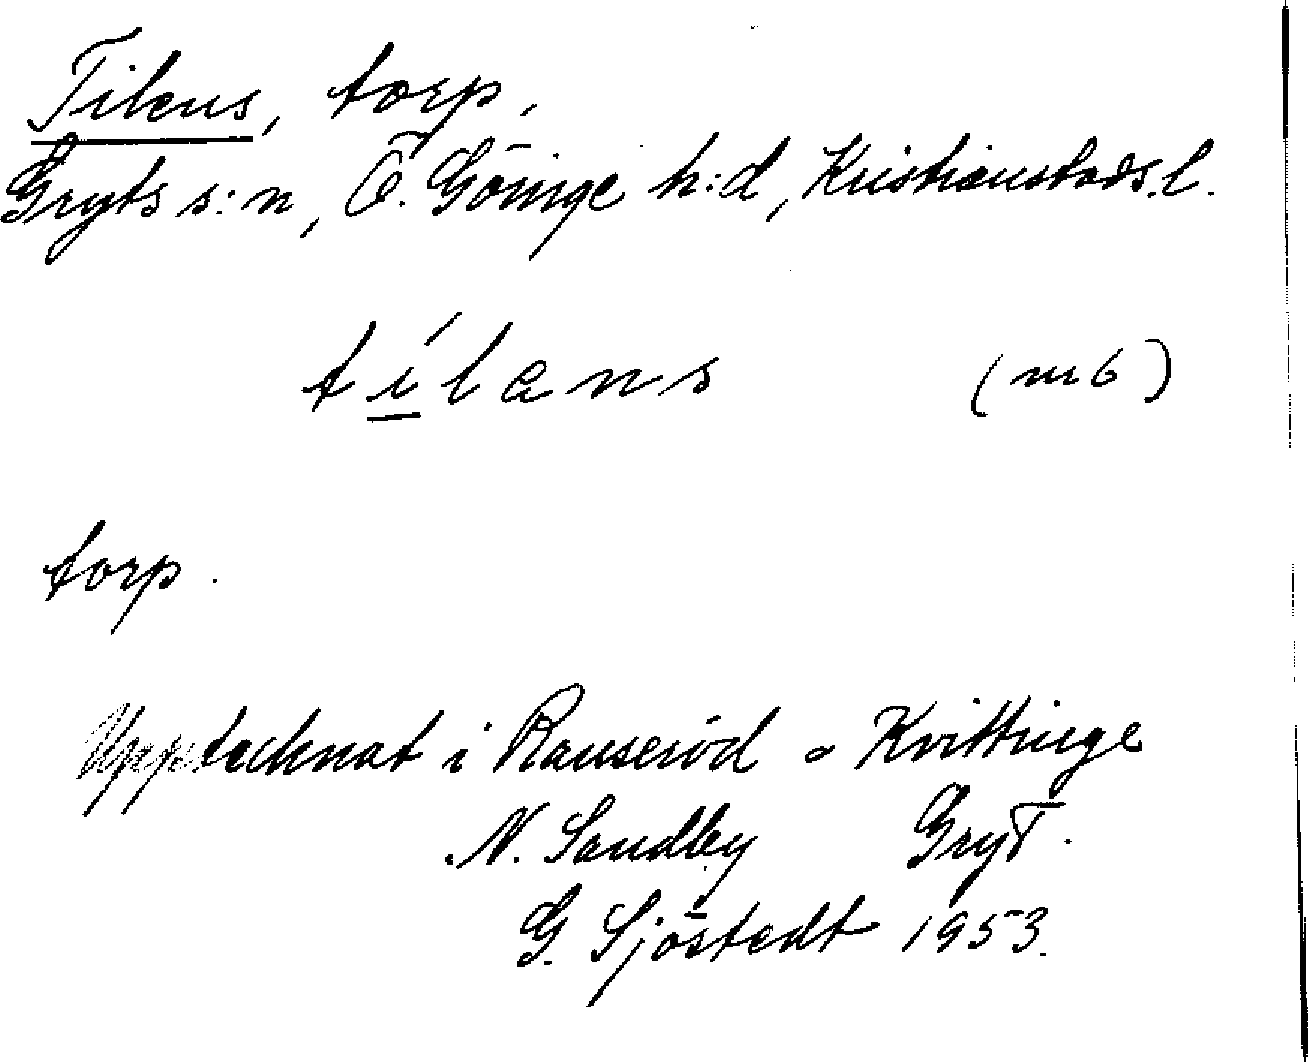 Tilens, torp,
Gryts s:n, Ö. Göinge h:d, Kristianstads l.
tílens (m 6)
torp.
Upptecknat i Rauseröd o Kvittinge
N. Sandby Gryt.
G. Sjöstedt 1953.